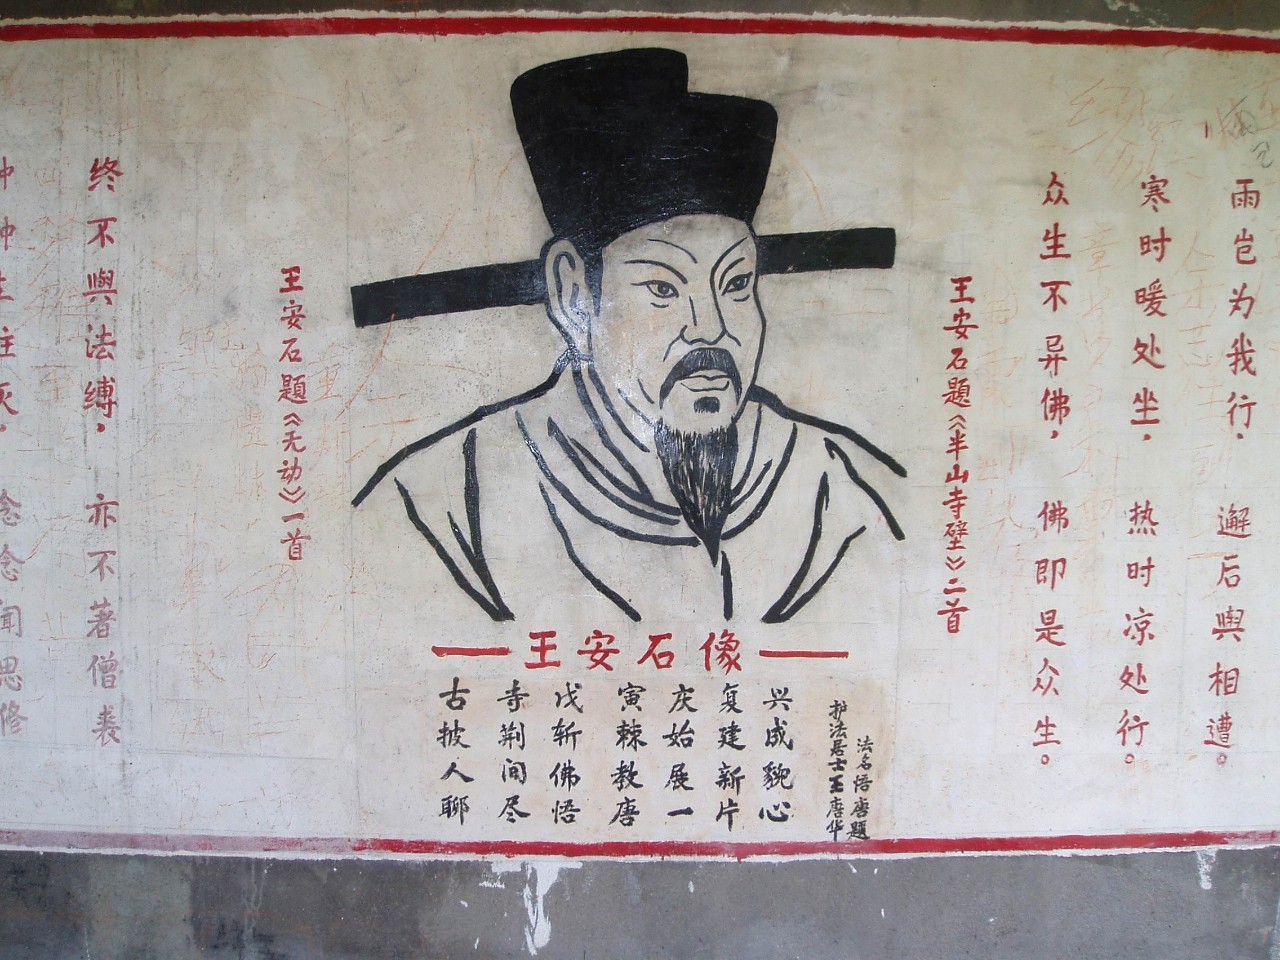 雨岂为我行，邂后與相遭。
寒时暖处坐，热时凉处行。
众生不异佛，佛即是众生。
王安石題《半山寺壁》二首
王安石像
古寺戊寅庆复兴
披荆斩棘始建成
人间佛教展新貌
聊尽悟唐一片心
法名悟唐題
护法居士王唐华
王安石題《无动》一首
终不與法缚，亦不著僧裘
生住灭，念念闻思修